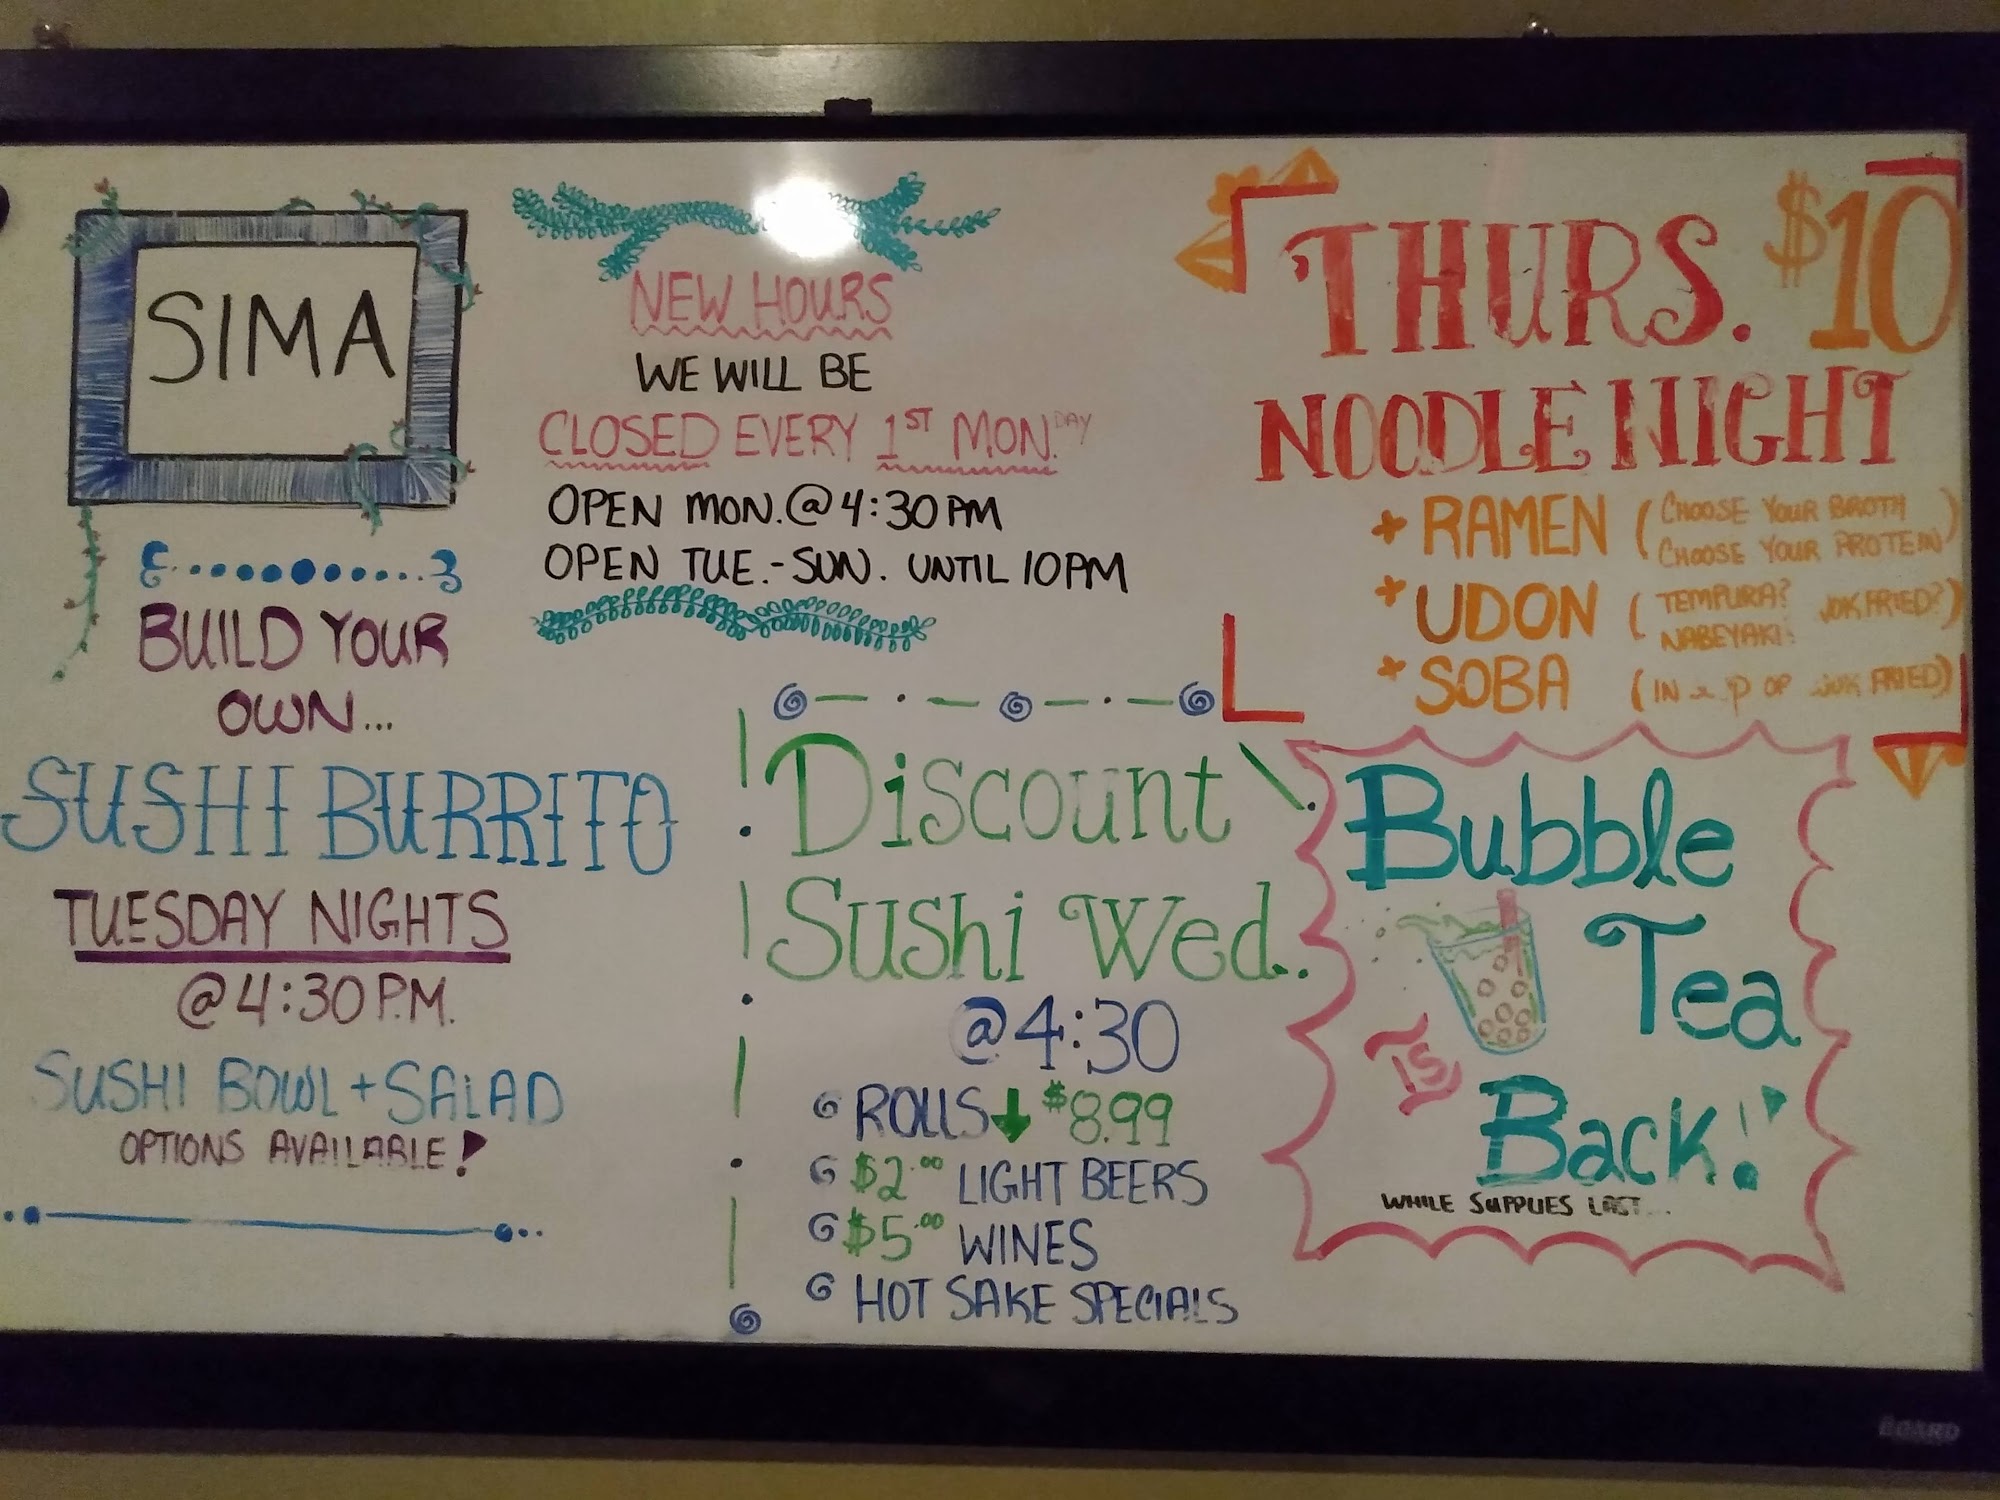 SIMA
BUILD YOUR
OWN...
SUSHI BURRITO
TUESDAY NIGHTS
@4:30 P.M.
SUSHI BOWL + SALAD
OPTIONS AVAILABLE!
NEW HOURS
WE WILL BE
CLOSED EVERY 1ST MON.DAY
OPEN MON. @ 4:30 PM
OPEN TUE. - SUN. UNTIL 10PM
Discount
Sushi Wed..
@4:30
ROLLS ↓ $8.99
$2.00 LIGHT BEERS
$5.00 WINES
HOT SAKE SPECIALS
THURS. $10
NOODLE NIGHT
RAMEN (CHOOSE YOUR BROTH
CHOOSE YOUR PROTEIN)
UDON (TEMPURA? FRIED?)
NABEYAKI
SOBA (IN FRIED)
Bubble
Tea
IS
Back!
WHILE SUPPLIES LAST...
BOARD